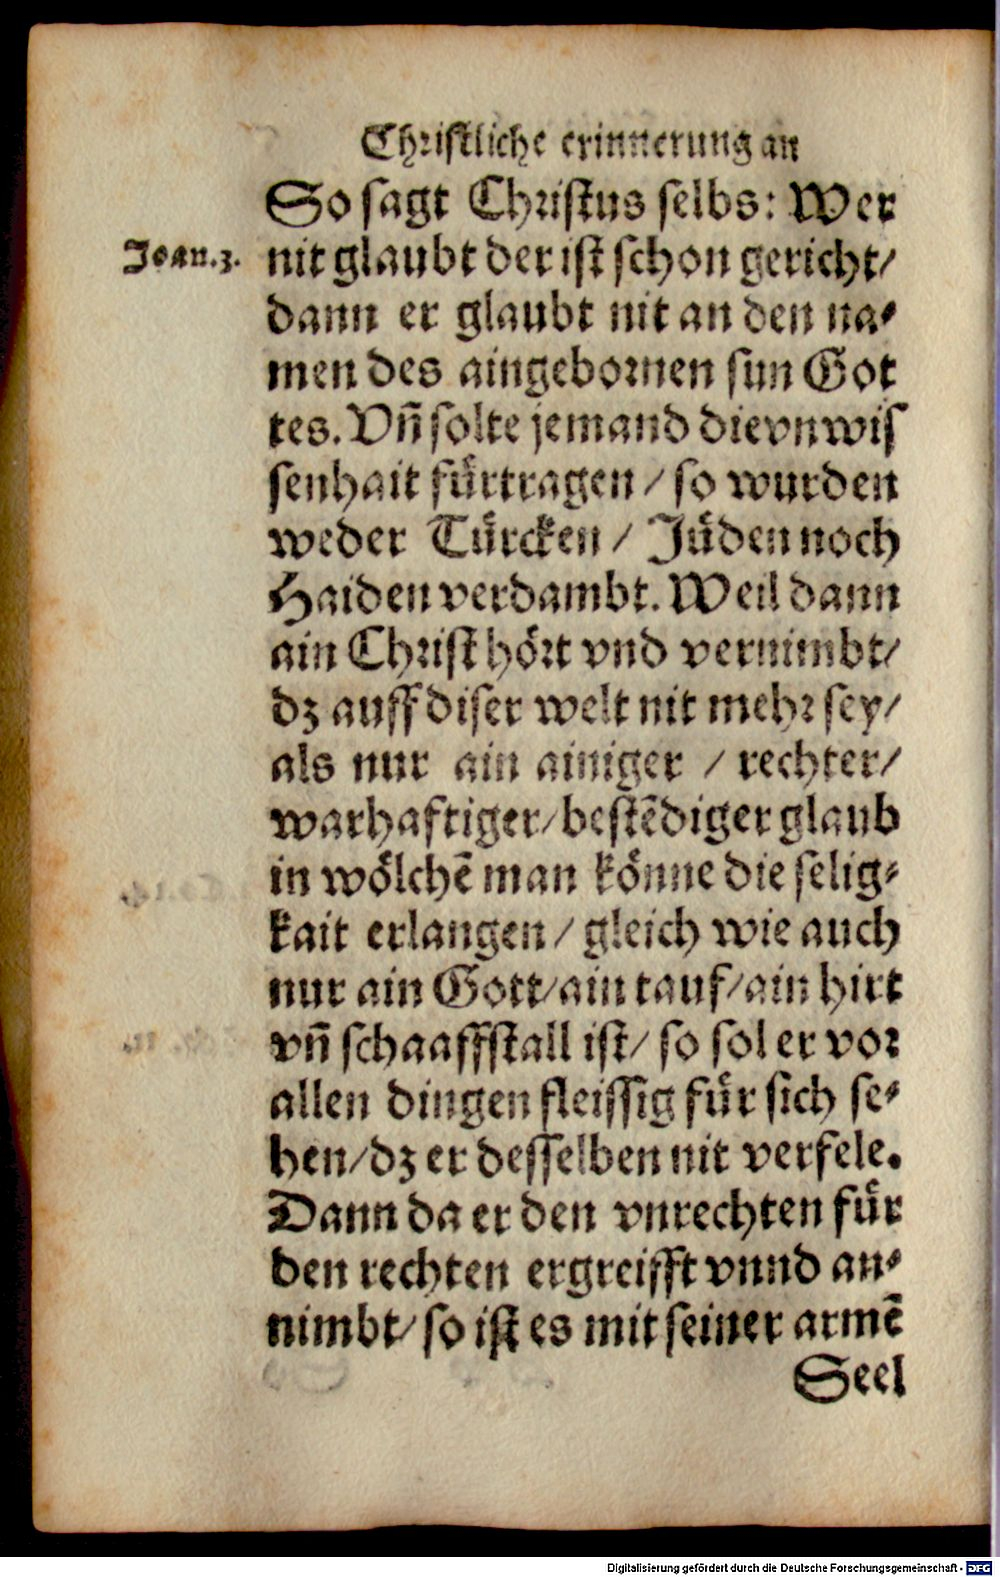 Christliche erinnerung an
So sagt Christus selbs: Wer
Joan.3.
nit glaubt der ist schon gericht/
dann er glaubt nit an den na-
men des aingebornen sun Got
tes. Vñ solte jemand die vnwis
senhait fürtragen / so wurden
weder Türcken / Jüden noch
Haiden verdambt. Weil dann
ain Christ hört vnd vernimbt/
dz auff diser welt nit mehr sey/
als nur ain ainiger / rechter/
warhaftiger/bestẽdiger glaub
in wölchẽ man könne die selig-
kait erlangen / gleich wie auch
nur ain Gott/ain tauf/ain hirt
vñ schaaffstall ist/ so sol er vor
allen dingen fleissig für sich se-
hen/dz er desselben nit verfele.
Dann da er den vnrechten für
den rechten ergreifft vnnd an-
nimbt/ so ist es mit seiner armẽ
Seel
Digitalisierung gefördert durch die Deutsche Forschungsgemeinschaft - DFG